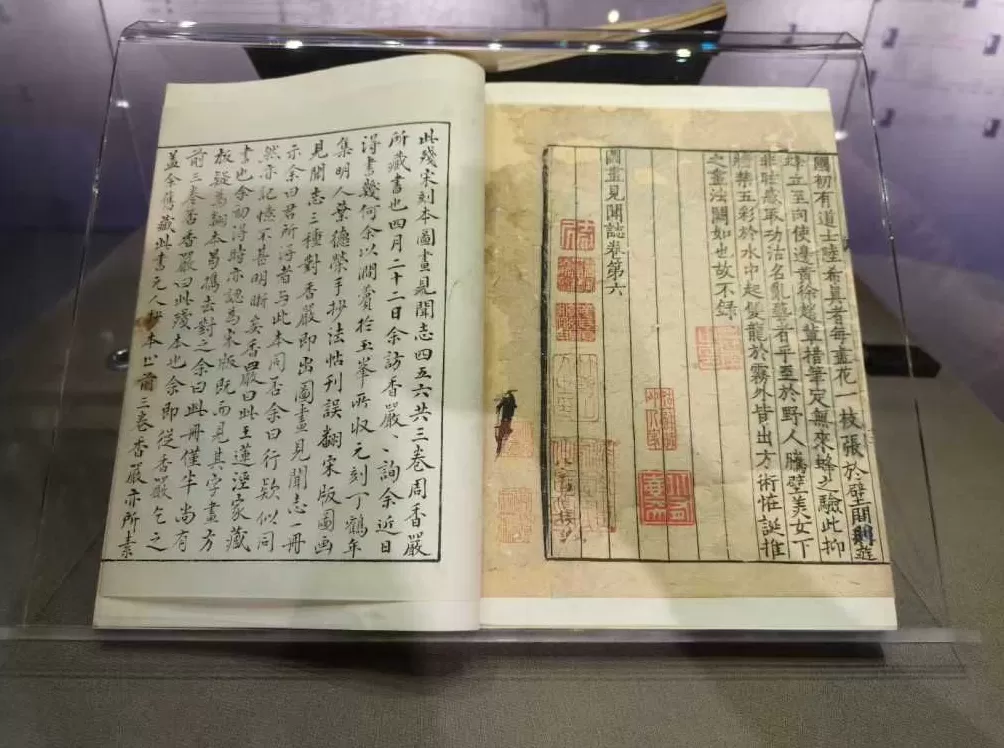 國初有道士陸希真者每畫花一枝張於壁間則遊
蜂立至向使邊黃徐趙輩措筆定無來蜂之驗此抑
非眩惑取功沽名亂藝者乎至於野人騰壁美女下
牆禁五彩於水中起雙龍於霧外皆出方術怪誕推
之畫法闕如也故不錄
圖畫見聞誌卷第六
此殘宋刻本圖畫見聞志四五六共三卷周香嚴
所藏書也四月二十二日余訪香嚴、詢余近日
得書幾何余以澗薲於玉峯所收元刻丁鶴年
集明人葉德榮手抄法帖刊誤翻宋版圖畫
見聞志三種對香嚴即出圖畫見聞志一冊
示余曰君所得者与此本同否余曰行欵似同
然亦記憶不甚明晰矣香嚴曰此王蓮涇家藏
書也余初得時亦認為宋版既而見其字畫方
板疑為翻本曷攜去對之余曰此冊僅半尚有
前三卷否香嚴曰此殘本也余即從香嚴乞之
盖余舊藏此書元人抄本止前三卷香嚴亦所素